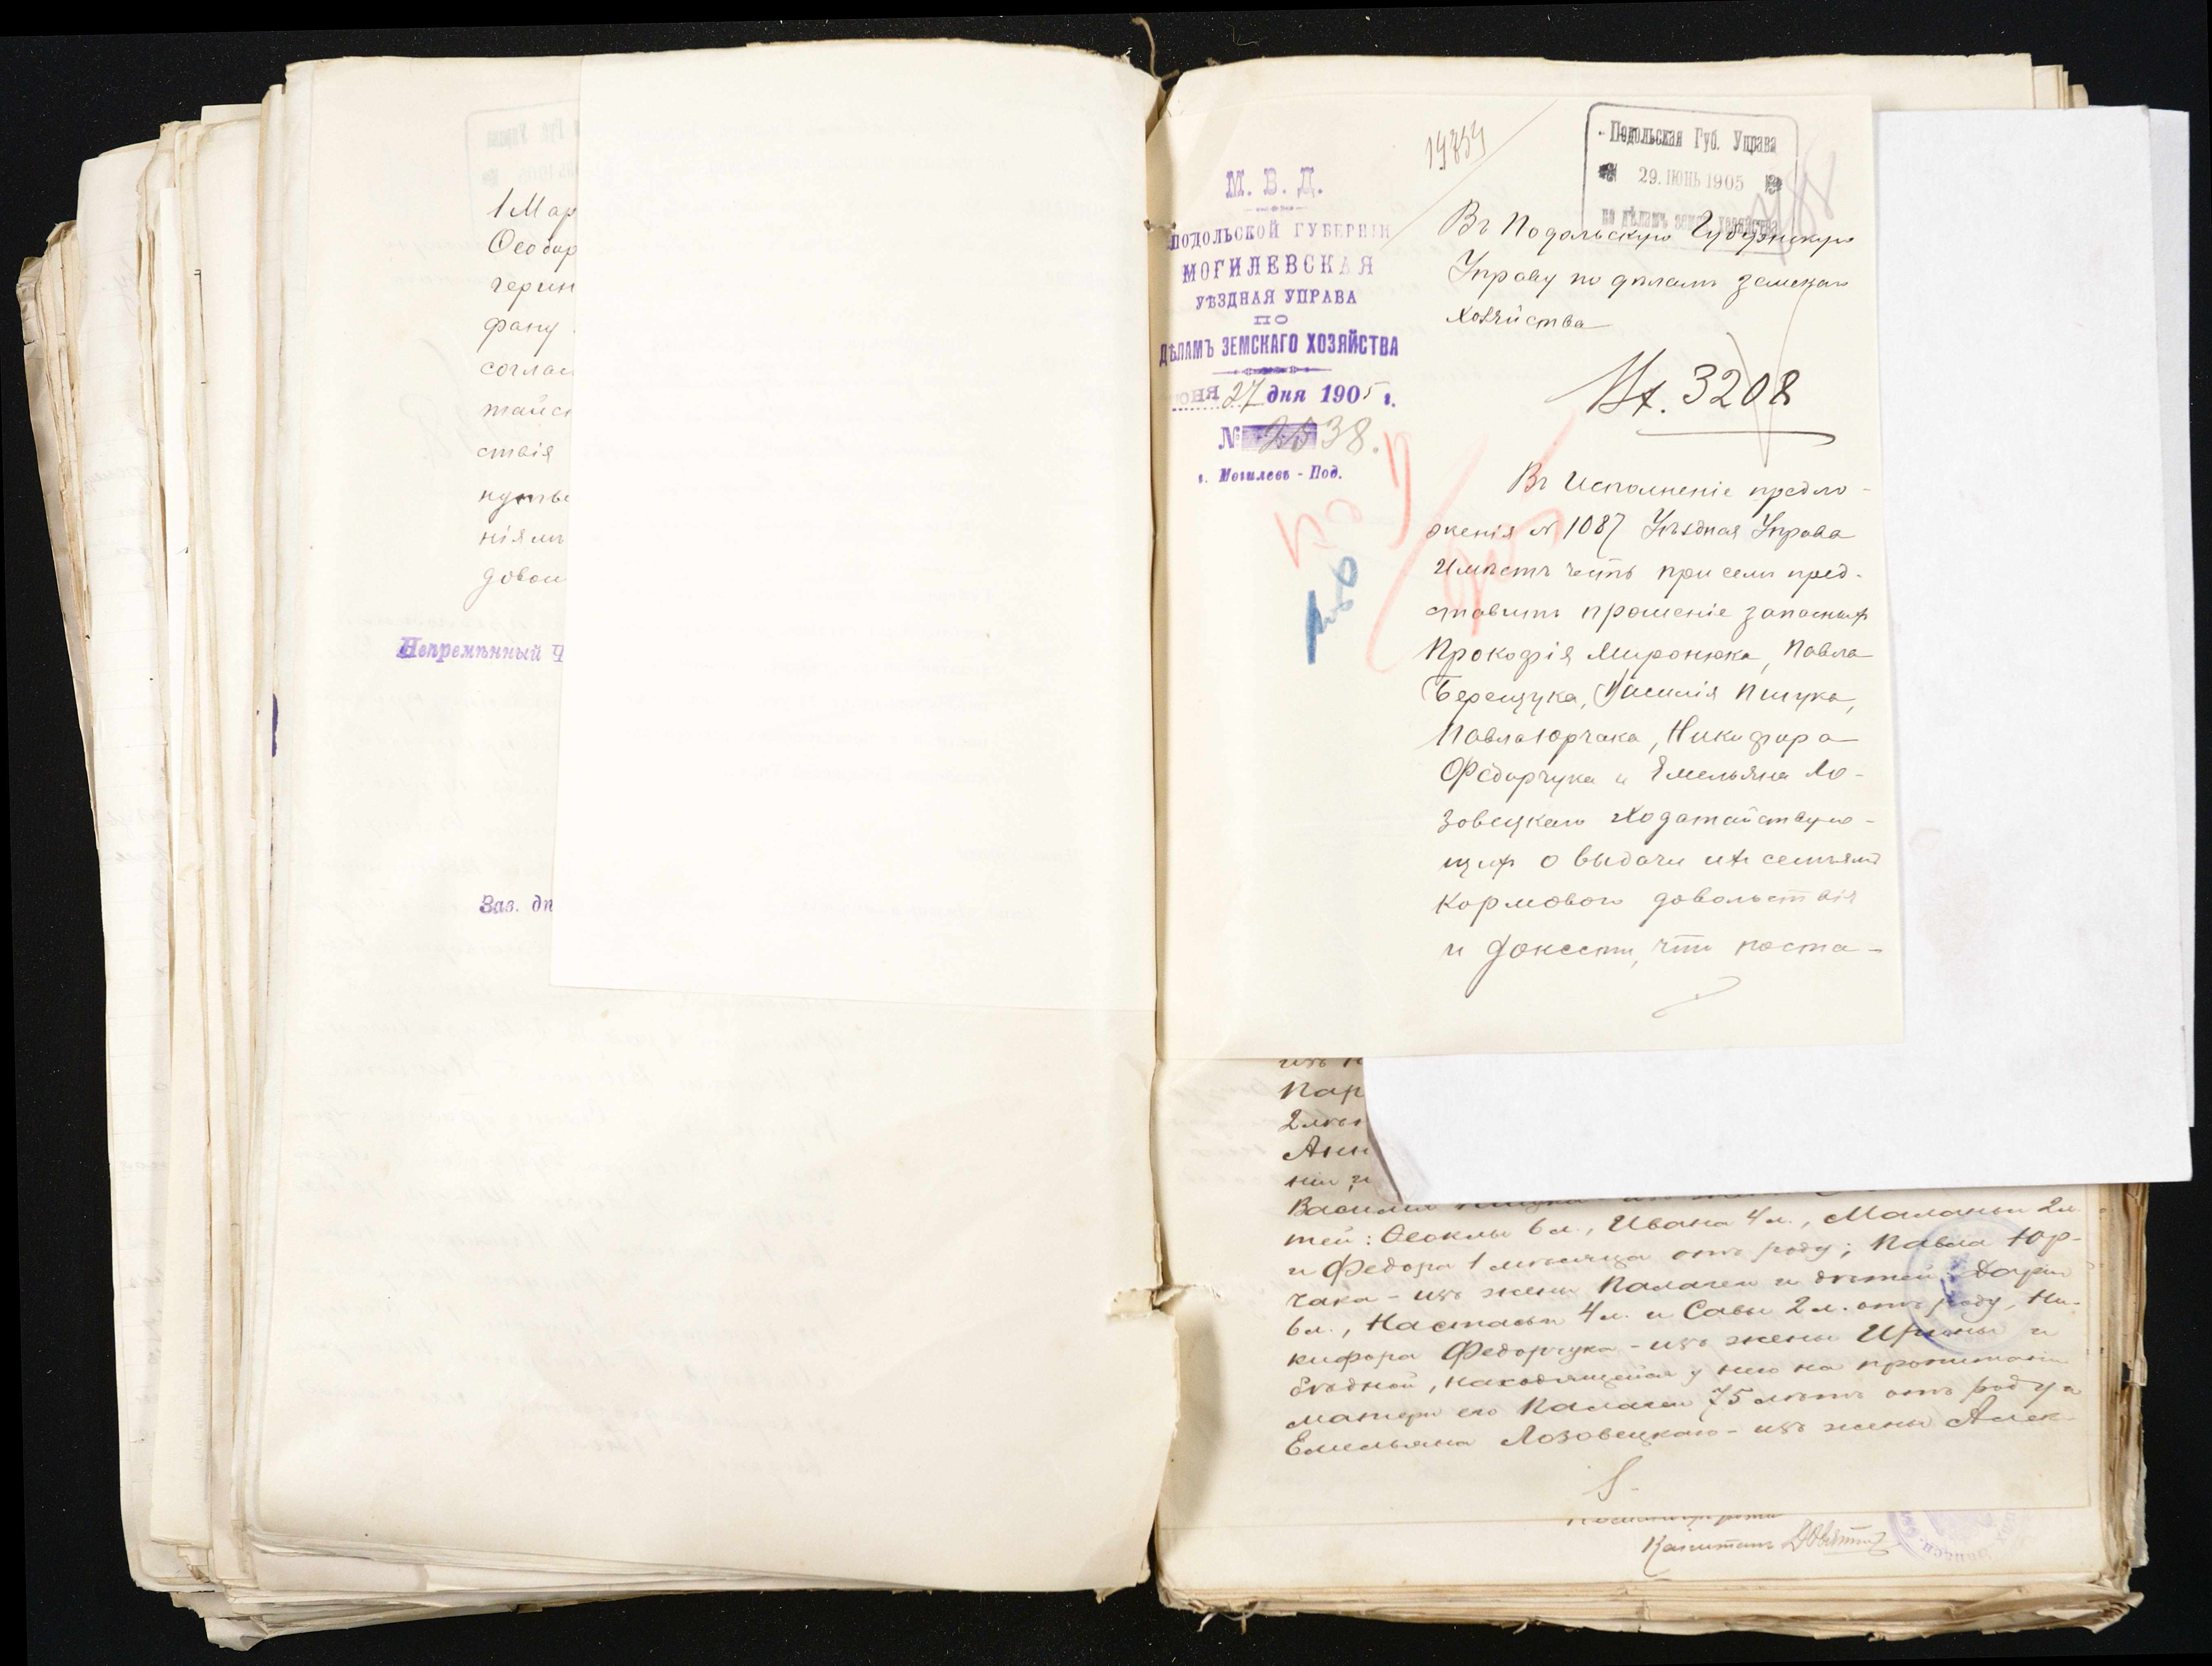 1 Мар
Особор
черин
фану
соглас
тайст
ствія
путье
ніями
довол
Непремѣнный Ч
Зав. дѣ
М. В. Д.
ПОДОЛЬСКОЙ ГУБЕРНІИ
МОГИЛЕВСКАЯ
УѢЗДНАЯ УПРАВА
ПО
ДѢЛАМЪ ЗЕМСКАГО ХОЗЯЙСТВА
юня 27 дня 1905 г.
№ 2538.
г. Могилевъ - Под.
Подольская Губ. Управа
29. ІЮНЬ 1905
по дѣламъ земск. хозяйства
Въ Подольскую Губернскую
Управу по дѣламъ земскаго
хозяйства
Их. 3208
Въ исполненіе предло-
женія № 1087 Уѣздная Управа
имѣетъ честь при семъ пред-
ставить прошеніе запасныхъ
Прокофія Миронюка, Павла
Берещука, Василія Пищука,
Павла Юрчака, Никифора
Федорчука и Емельяна Ло-
зовецкаго ходатайствую-
щихъ о выдачи ихъ семьямъ
кормового довольствія
и донести, что поста-
изъ
Пар
2 мѣс
Анн
ни и
Василія Пищука изъ жены
тей: Ѳеклы 6 л., Ивана 4 л., Маланьи 2 л.
и Федора 1 мѣсяца отъ роду; Павла Юр-
чака - изъ жены Палагеи и дѣтей: Дарьи
6 л., Настасьи 4 л. и Савы 2 л. отъ роду, Ни-
кифора Федорчука - изъ жены Ирины и
бѣдной, находящейся у него на пропитаніи
матери его Палагеи 75 лѣтъ отъ роду и
Емельяна Лозовецкаго - изъ жены Алек-
Капитанъ